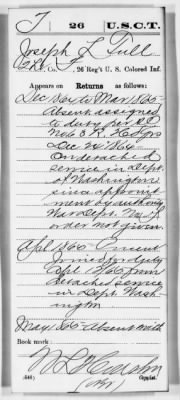 T | 26 | U.S.C.T.
Joseph L Tull
Co. F, 26 Reg't U. S. Colored Inf.
Appears on Returns as follows:
Dec 1864 to Mar 1865
Absent assigned
to duty per S.O.
No 6 Hd Qrs
Dec 24 1864
On detached
service in Dept.
of Washington
since appoint
ment by authority
War Dept. No. of
order not given.
Apl 1865
Joined for duty
Apl 1865 from
detached service
in Dept. Wash-
ington
May 1865 Absent with
Book mark:
(546) Copyist.